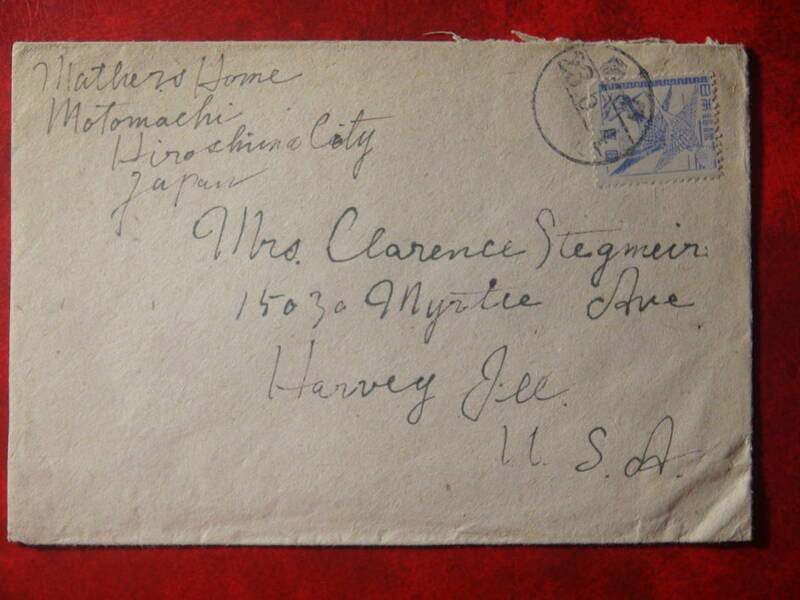 Mathers Home
Motomachi
Hiroshima City
Japan
Mrs. Clarence Stegmeir
15030 Myrtle Ave
Harvey Ill.
U. S. A.